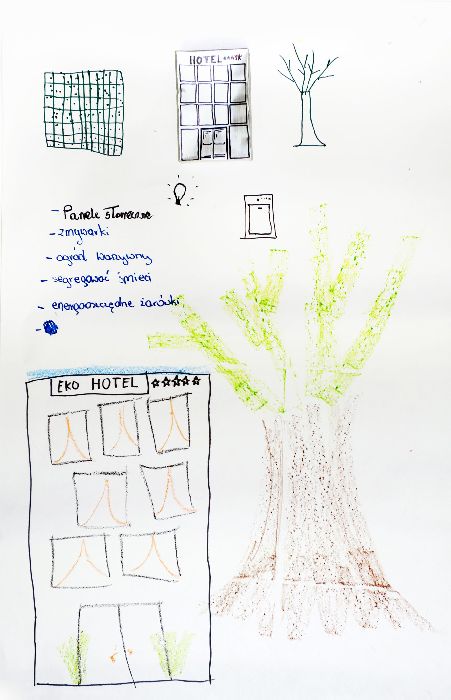 HOTEL ****
- Panele słoneczne
- zmywarki
- ogród warzywny
- segregować śmieci
- energooszczędne żarówki
-
EKO HOTEL ☆☆☆☆☆